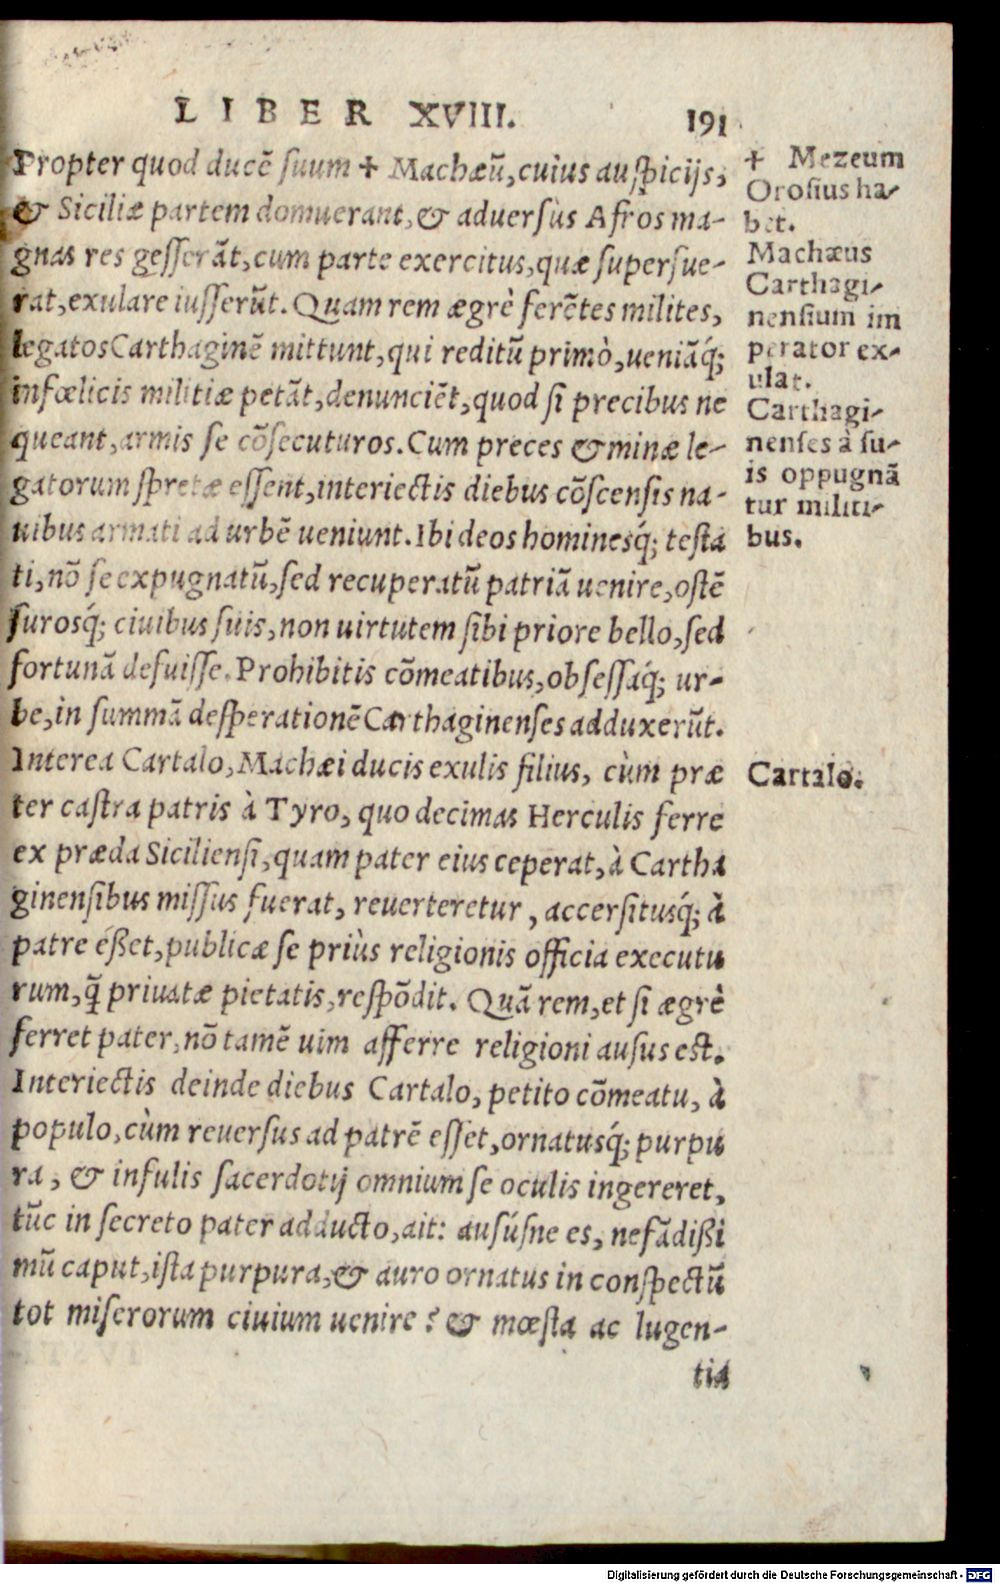 LIBER XVIII. 191
Propter quod ducē suum ✢ Machæū, cuius auspicijs,
& Siciliæ partem domuerant, & aduersùs Afros ma-
gnas res gesserāt, cum parte exercitus, quæ superfue-
rat, exulare iusserūt. Quam rem ægrè ferētes milites,
legatos Carthaginē mittunt, qui reditū primò, ueniāq́;
infœlicis militiæ petāt, denunciēt, quod si precibus ne
queant, armis se cōsecuturos. Cum preces & minæ le-
gatorum spretæ essent, interiectis diebus cōscensis na-
uibus armati ad urbē ueniunt. Ibi deos hominesq́; testa
ti, nō se expugnatū, sed recuperatū patriā uenire, ostē
surosq́; ciuibus suis, non uirtutem sibi priore bello, sed
fortunā defuisse. Prohibitis cōmeatibus, obsessaq́; ur-
be, in summā desperationē Carthaginenses adduxerūt.
Interea Cartalo, Machæi ducis exulis filius, cùm præ
ter castra patris à Tyro, quo decimas Herculis ferre
ex præda Siciliensi, quam pater eius ceperat, à Cartha
ginensibus missus fuerat, reuerteretur, accersitusq́; à
patre eßet, publicæ se priùs religionis officia executu
rum, q̄ priuatæ pietatis, respōdit. Quā rem, et si ægrè
ferret pater, nō tamē uim afferre religioni ausus est.
Interiectis deinde diebus Cartalo, petito cōmeatu, à
populo, cùm reuersus ad patrē esset, ornatusq́; purpu
ra, & infulis sacerdotij omnium se oculis ingereret,
tūc in secreto pater adducto, ait: ausúsne es, nefādißi
mū caput, ista purpura, & auro ornatus in conspectū
tot miserorum ciuium uenire? & mœsta ac lugen-
tia
✢ Mezeum
Orosius ha-
bet.
Machæus
Carthagi-
nensium im
perator ex-
ulat.
Carthagi-
nenses à su-
is oppugnā
tur militi-
bus.
Cartalo.
Digitalisierung gefördert durch die Deutsche Forschungsgemeinschaft - DFG